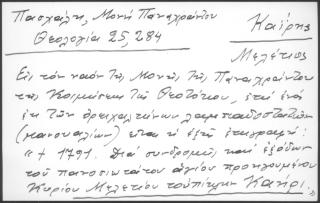 Πασχάλη, Μονή Παναχράντου
Θεολογία 25, 284
Καΐρης
Μελέτιος
Εις τον ναόν της Μονής της Παναχράντου
της Κοιμήσεως της Θεοτόκου, επί ενός
εκ των ορειχαλκίνων λαμπαδοστατών
(μανουαλίων) είναι η εξής επιγραφή:
"+ 1791. Διά συνδρομής και εξόδων
του πανοσιωτάτου αγίου προηγουμένου
Κυρίου Μελετίου τουπίκλην Καήρι.„